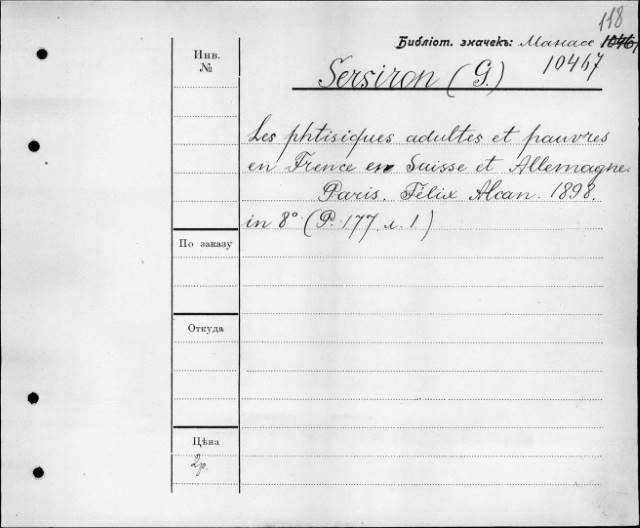 118
Библіот. значекъ: Манасе 10467
10467
Инв.
№
Sersiron (G.)
Les phtisiques adultes et pauvres
en Frence en Suisse et Allemagne.
Paris. Félix Alcan. 1898.
in 8° (P. 177 л. 1.)
По заказу
Откуда
Цѣна
2р.